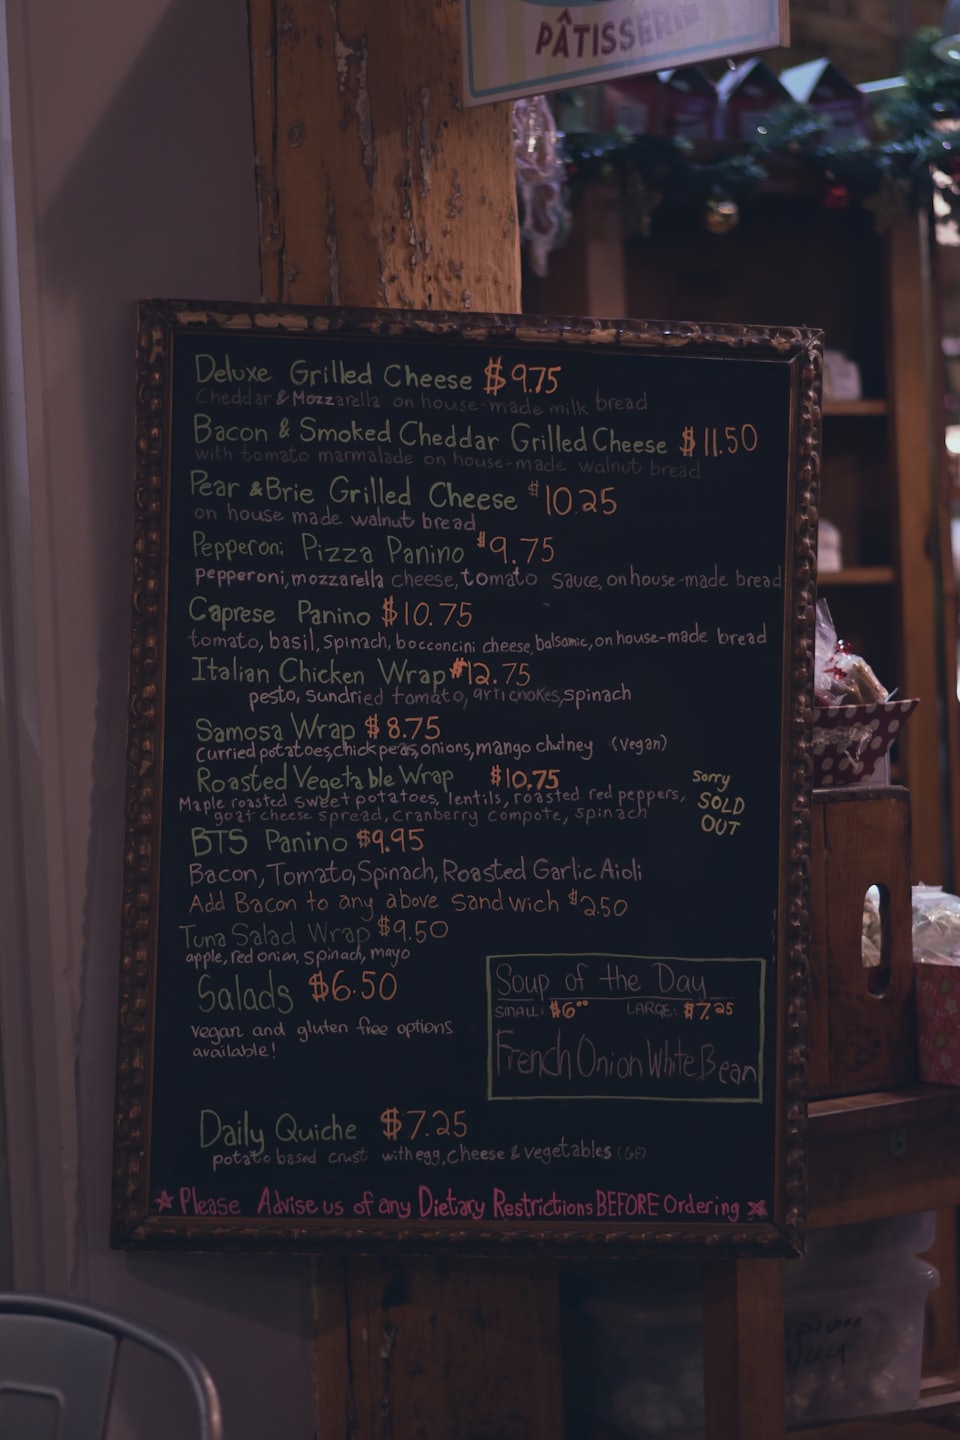 PÂTISSERIE
Deluxe Grilled Cheese $9.75
Cheddar & Mozzarella on house-made milk bread
Bacon & Smoked Cheddar Grilled Cheese $11.50
with tomato marmalade on house-made walnut bread
Pear & Brie Grilled Cheese $10.25
on house made walnut bread
Pepperoni Pizza Panino $9.75
pepperoni, mozzarella cheese, tomato sauce, on house-made bread
Caprese Panino $10.75
tomato, basil, spinach, bocconcini cheese, balsamic, on house-made bread
Italian Chicken Wrap $12.75
pesto, sundried tomato, artichokes, spinach
Samosa Wrap $8.75
Curried potatoes, chick peas, onions, mango chutney (vegan)
Roasted Vegetable Wrap $10.75
Maple roasted sweet potatoes, lentils, roasted red peppers,
goat cheese spread, cranberry compote, spinach
Sorry
SOLD
OUT
BTS Panino $9.95
Bacon, Tomato, Spinach, Roasted Garlic Aioli
Add Bacon to any above Sandwich $2.50
Tuna Salad Wrap $9.50
apple, red onion, spinach, mayo
Salads $6.50
vegan and gluten free options
available!
Soup of the Day
SMALL: $6.00 LARGE: $7.25
French Onion White Bean
Daily Quiche $7.25
potato based crust with egg, cheese & vegetables (GF)
Please Advise us of any Dietary Restrictions BEFORE Ordering